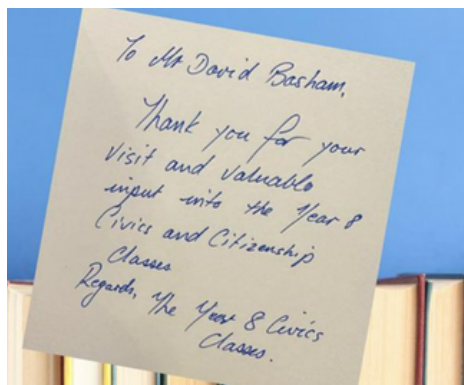 To Mr David Basham,
Thank you for your
visit and valuable
input into the Year 8
Civics and Citizenship
Classes
Regards, The Year 8 Civics
Classes.